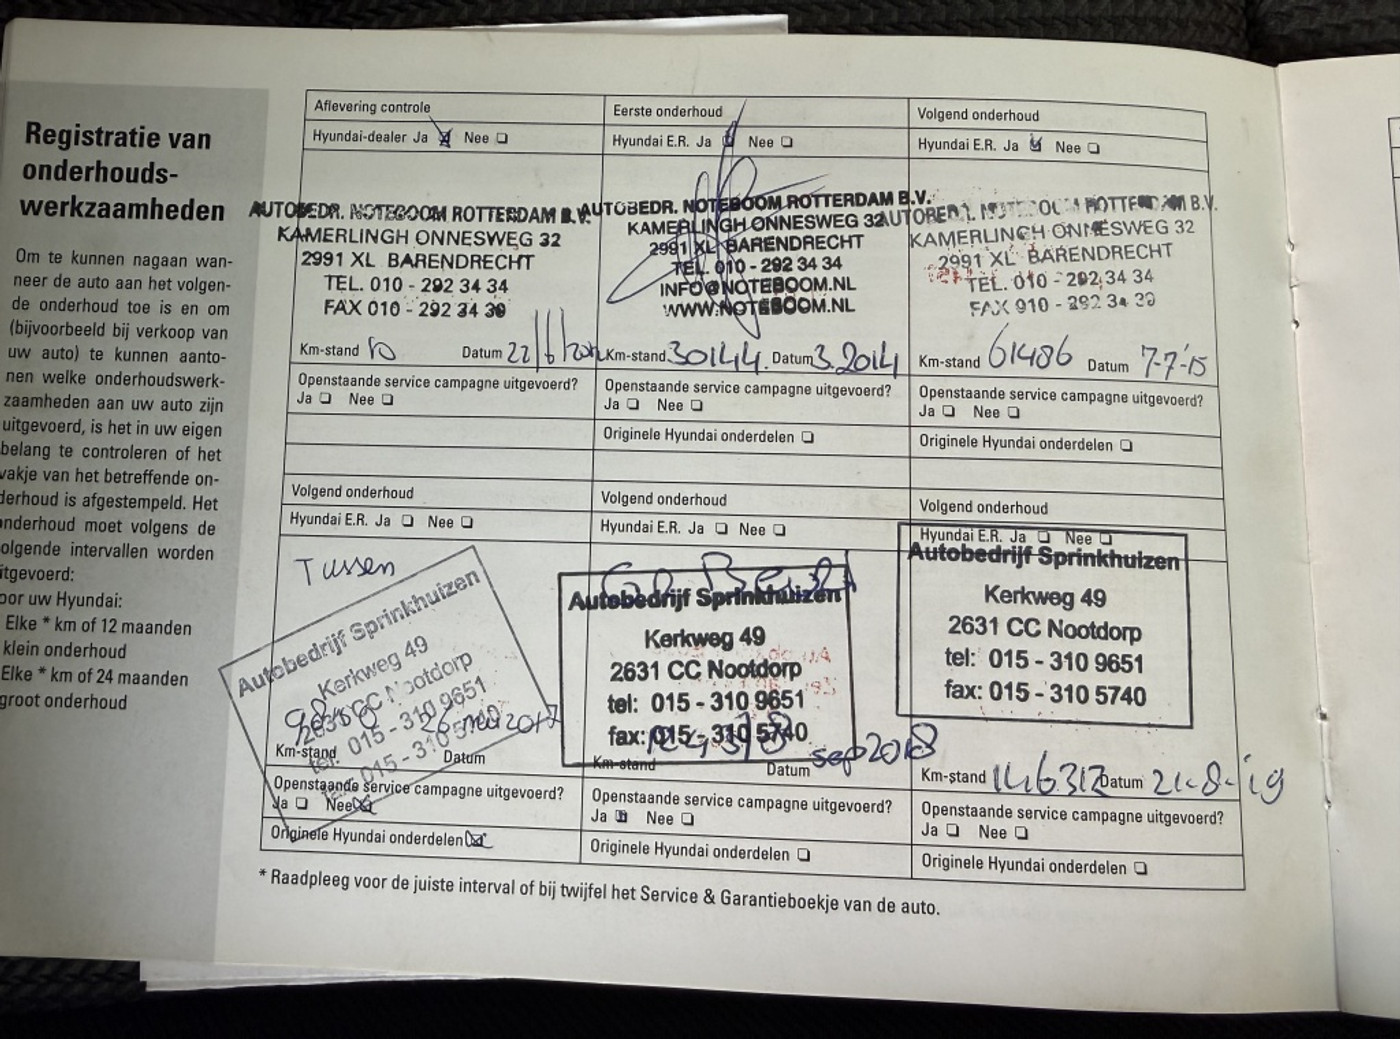 Registratie van
onderhouds-
werkzaamheden
Om te kunnen nagaan wan-
neer de auto aan het volgen-
de onderhoud toe is en om
(bijvoorbeeld bij verkoop van
uw auto) te kunnen aanto-
nen welke onderhoudswerk-
zaamheden aan uw auto zijn
uitgevoerd, is het in uw eigen
belang te controleren of het
vakje van het betreffende on-
derhoud is afgestempeld. Het
onderhoud moet volgens de
olgende intervallen worden
itgevoerd:
oor uw Hyundai:
Elke * km of 12 maanden
klein onderhoud
Elke * km of 24 maanden
groot onderhoud
Aflevering controle
Hyundai-dealer Ja Nee
AUTOBEDR. NOTEBOOM ROTTERDAM B.V.
KAMERLINGH ONNESWEG 32
2991 XL BARENDRECHT
TEL. 010 - 292 34 34
FAX 010 - 292 34 39
Km-stand 10 Datum 22/6/
Openstaande service campagne uitgevoerd?
Ja Nee
Eerste onderhoud
Hyundai E.R. Ja Nee
AUTOBEDR. NOTEBOOM ROTTERDAM B.V.
KAMERLINGH ONNESWEG 32
2991 XL BARENDRECHT
TEL. 010 - 292 34 34
INFO@NOTEBOOM.NL
WWW.NOTEBOOM.NL
Km-stand 30144 Datum 3.2014
Openstaande service campagne uitgevoerd?
Ja Nee
Originele Hyundai onderdelen
Volgend onderhoud
Hyundai E.R. Ja Nee
AUTOBEDR. NOTEBOOM ROTTERDAM B.V.
KAMERLINGH ONNESWEG 32
2991 XL BARENDRECHT
TEL. 010 - 292 34 34
FAX 010 - 292 34 39
Km-stand 61486 Datum 7-7-'15
Openstaande service campagne uitgevoerd?
Ja Nee
Originele Hyundai onderdelen
Volgend onderhoud
Hyundai E.R. Ja Nee
Tussen
Autobedrijf Sprinkhuizen
Kerkweg 49
2631 CC Nootdorp
tel: 015 - 310 9651
015 - 310 5740
26 mei 2017
Km-stand Datum
Openstaande service campagne uitgevoerd?
Ja Nee
Originele Hyundai onderdelen
Volgend onderhoud
Hyundai E.R. Ja Nee
Autobedrijf Sprinkhuizen
Kerkweg 49
2631 CC Nootdorp
tel: 015 - 310 9651
fax: 015 - 310 5740
sep 2018
Km-stand Datum
Openstaande service campagne uitgevoerd?
Ja Nee
Originele Hyundai onderdelen
Volgend onderhoud
Hyundai E.R. Ja Nee
Autobedrijf Sprinkhuizen
Kerkweg 49
2631 CC Nootdorp
tel: 015 - 310 9651
fax: 015 - 310 5740
Km-stand 146312 Datum 21-8-19
Openstaande service campagne uitgevoerd?
Ja Nee
Originele Hyundai onderdelen
* Raadpleeg voor de juiste interval of bij twijfel het Service & Garantieboekje van de auto.